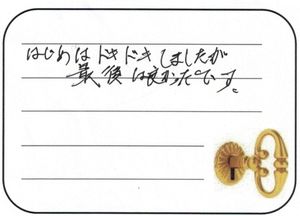 はじめはドキドキしましたが
最後は良かったです。